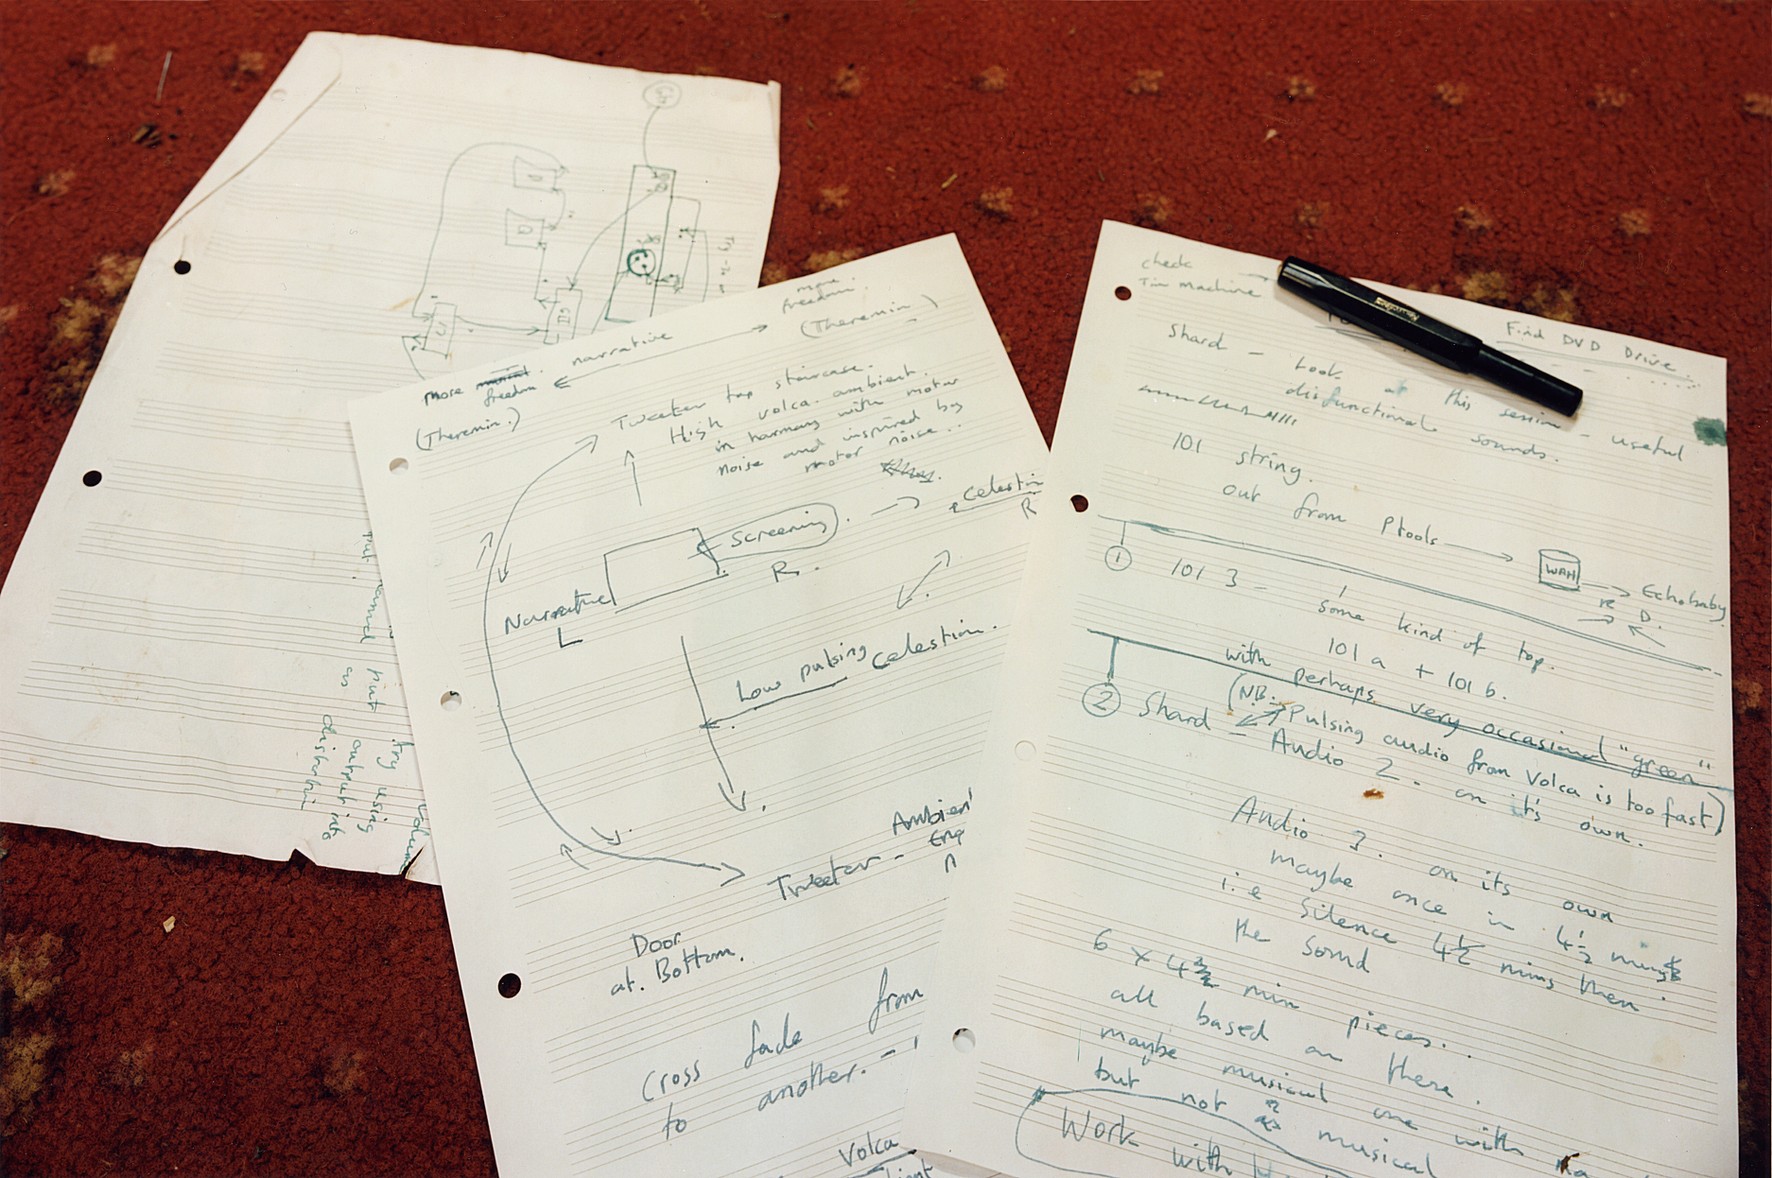 Try
put
put
as
try using
output into
more
freedom
(Theremin)
narrative
more freedom
(Theremin.)
Tweeter top staircase.
High volca. ambient.
in harmony with motor
noise and inspired by
motor noise..
Screening
R.
Celestin
R
Narrative
L
Low pulsing Celestion.
Ambien
Tweeter -
Door
at. Bottom.
Cross fade from
to another. -
Volca
check
Tim Machine
Find DVD Drive.
Shard - Look at this session - useful
disfunctional sounds.
101 string.
out from Ptools
WAH
Echobaby
D.
1 101 3 - some kind of top.
101a + 101b.
with perhaps very occasional "green"
2 Shard - (NB. Pulsing audio from Volca is too fast)
Audio 2 - on it's own.
Audio 3. on its own
maybe once in 4½ mins
i.e Silence 4½ mins then
the sound
6 x 4 min pieces..
all based on these.
maybe musical one with
but not musical
Work with